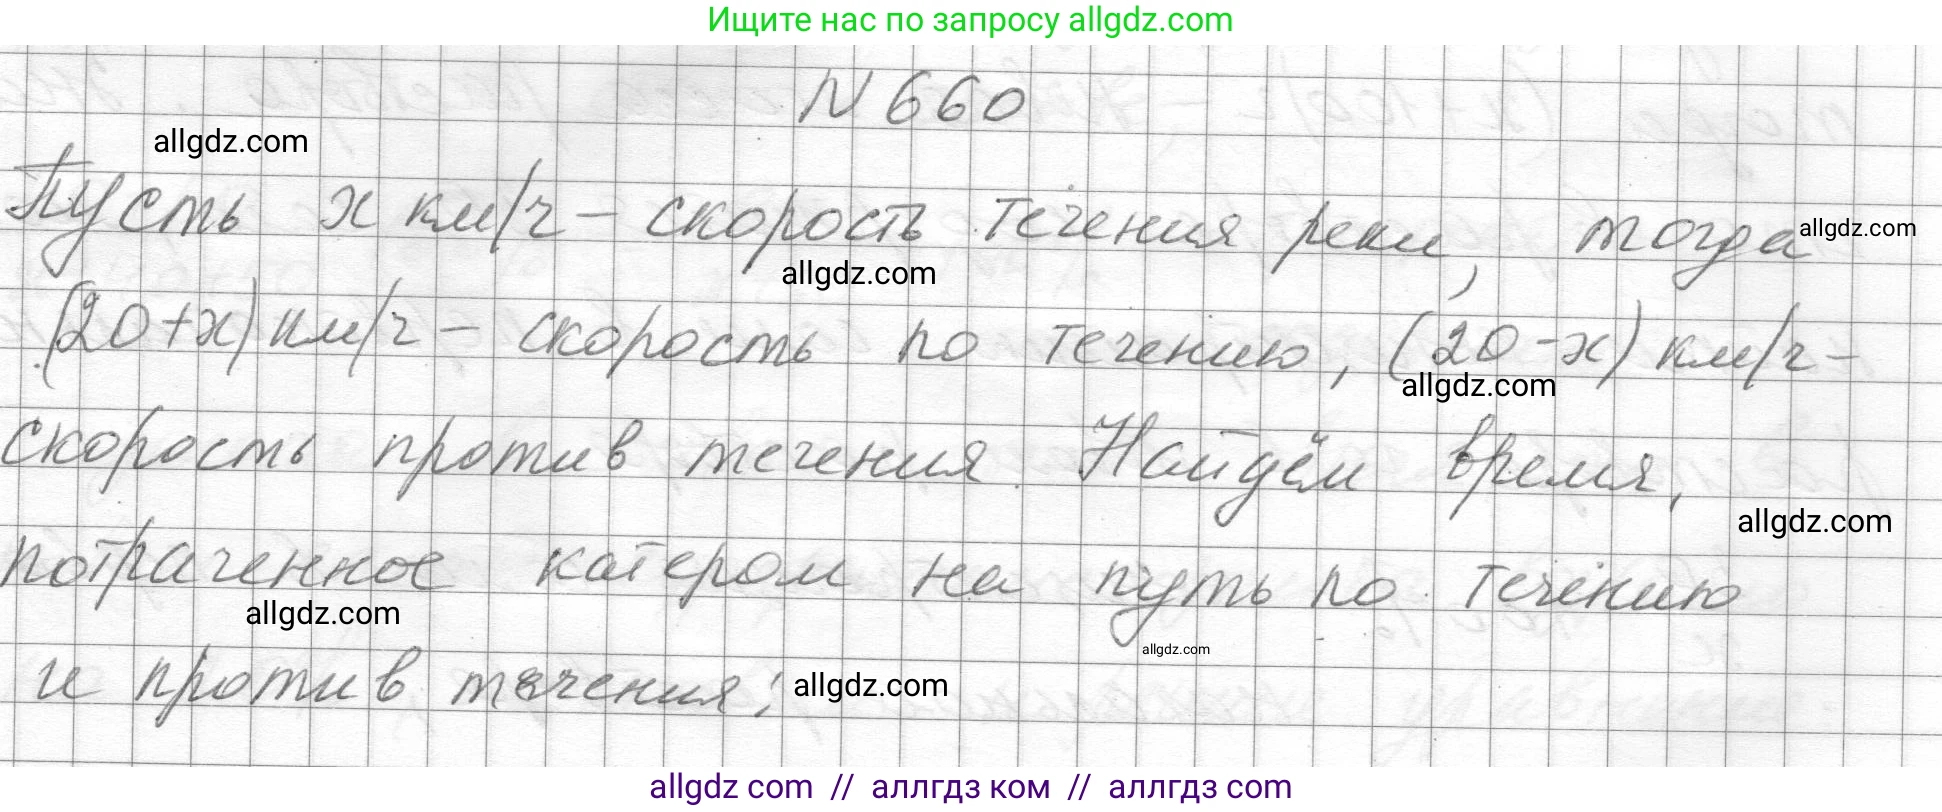 Ищите нас по запросу allgdz.com
N 660
allgdz.com
Пусть x км/ч – скорость течения реки, тогда allgdz.com
allgdz.com
(20+x) км/ч – скорость по течению, (20-x) км/ч –
allgdz.com
скорость против течения. Найдём время,
allgdz.com
потраченное катером на путь по течению
allgdz.com
allgdz.com
и против течения: allgdz.com
allgdz.com // аллгдз ком // аллгдз com